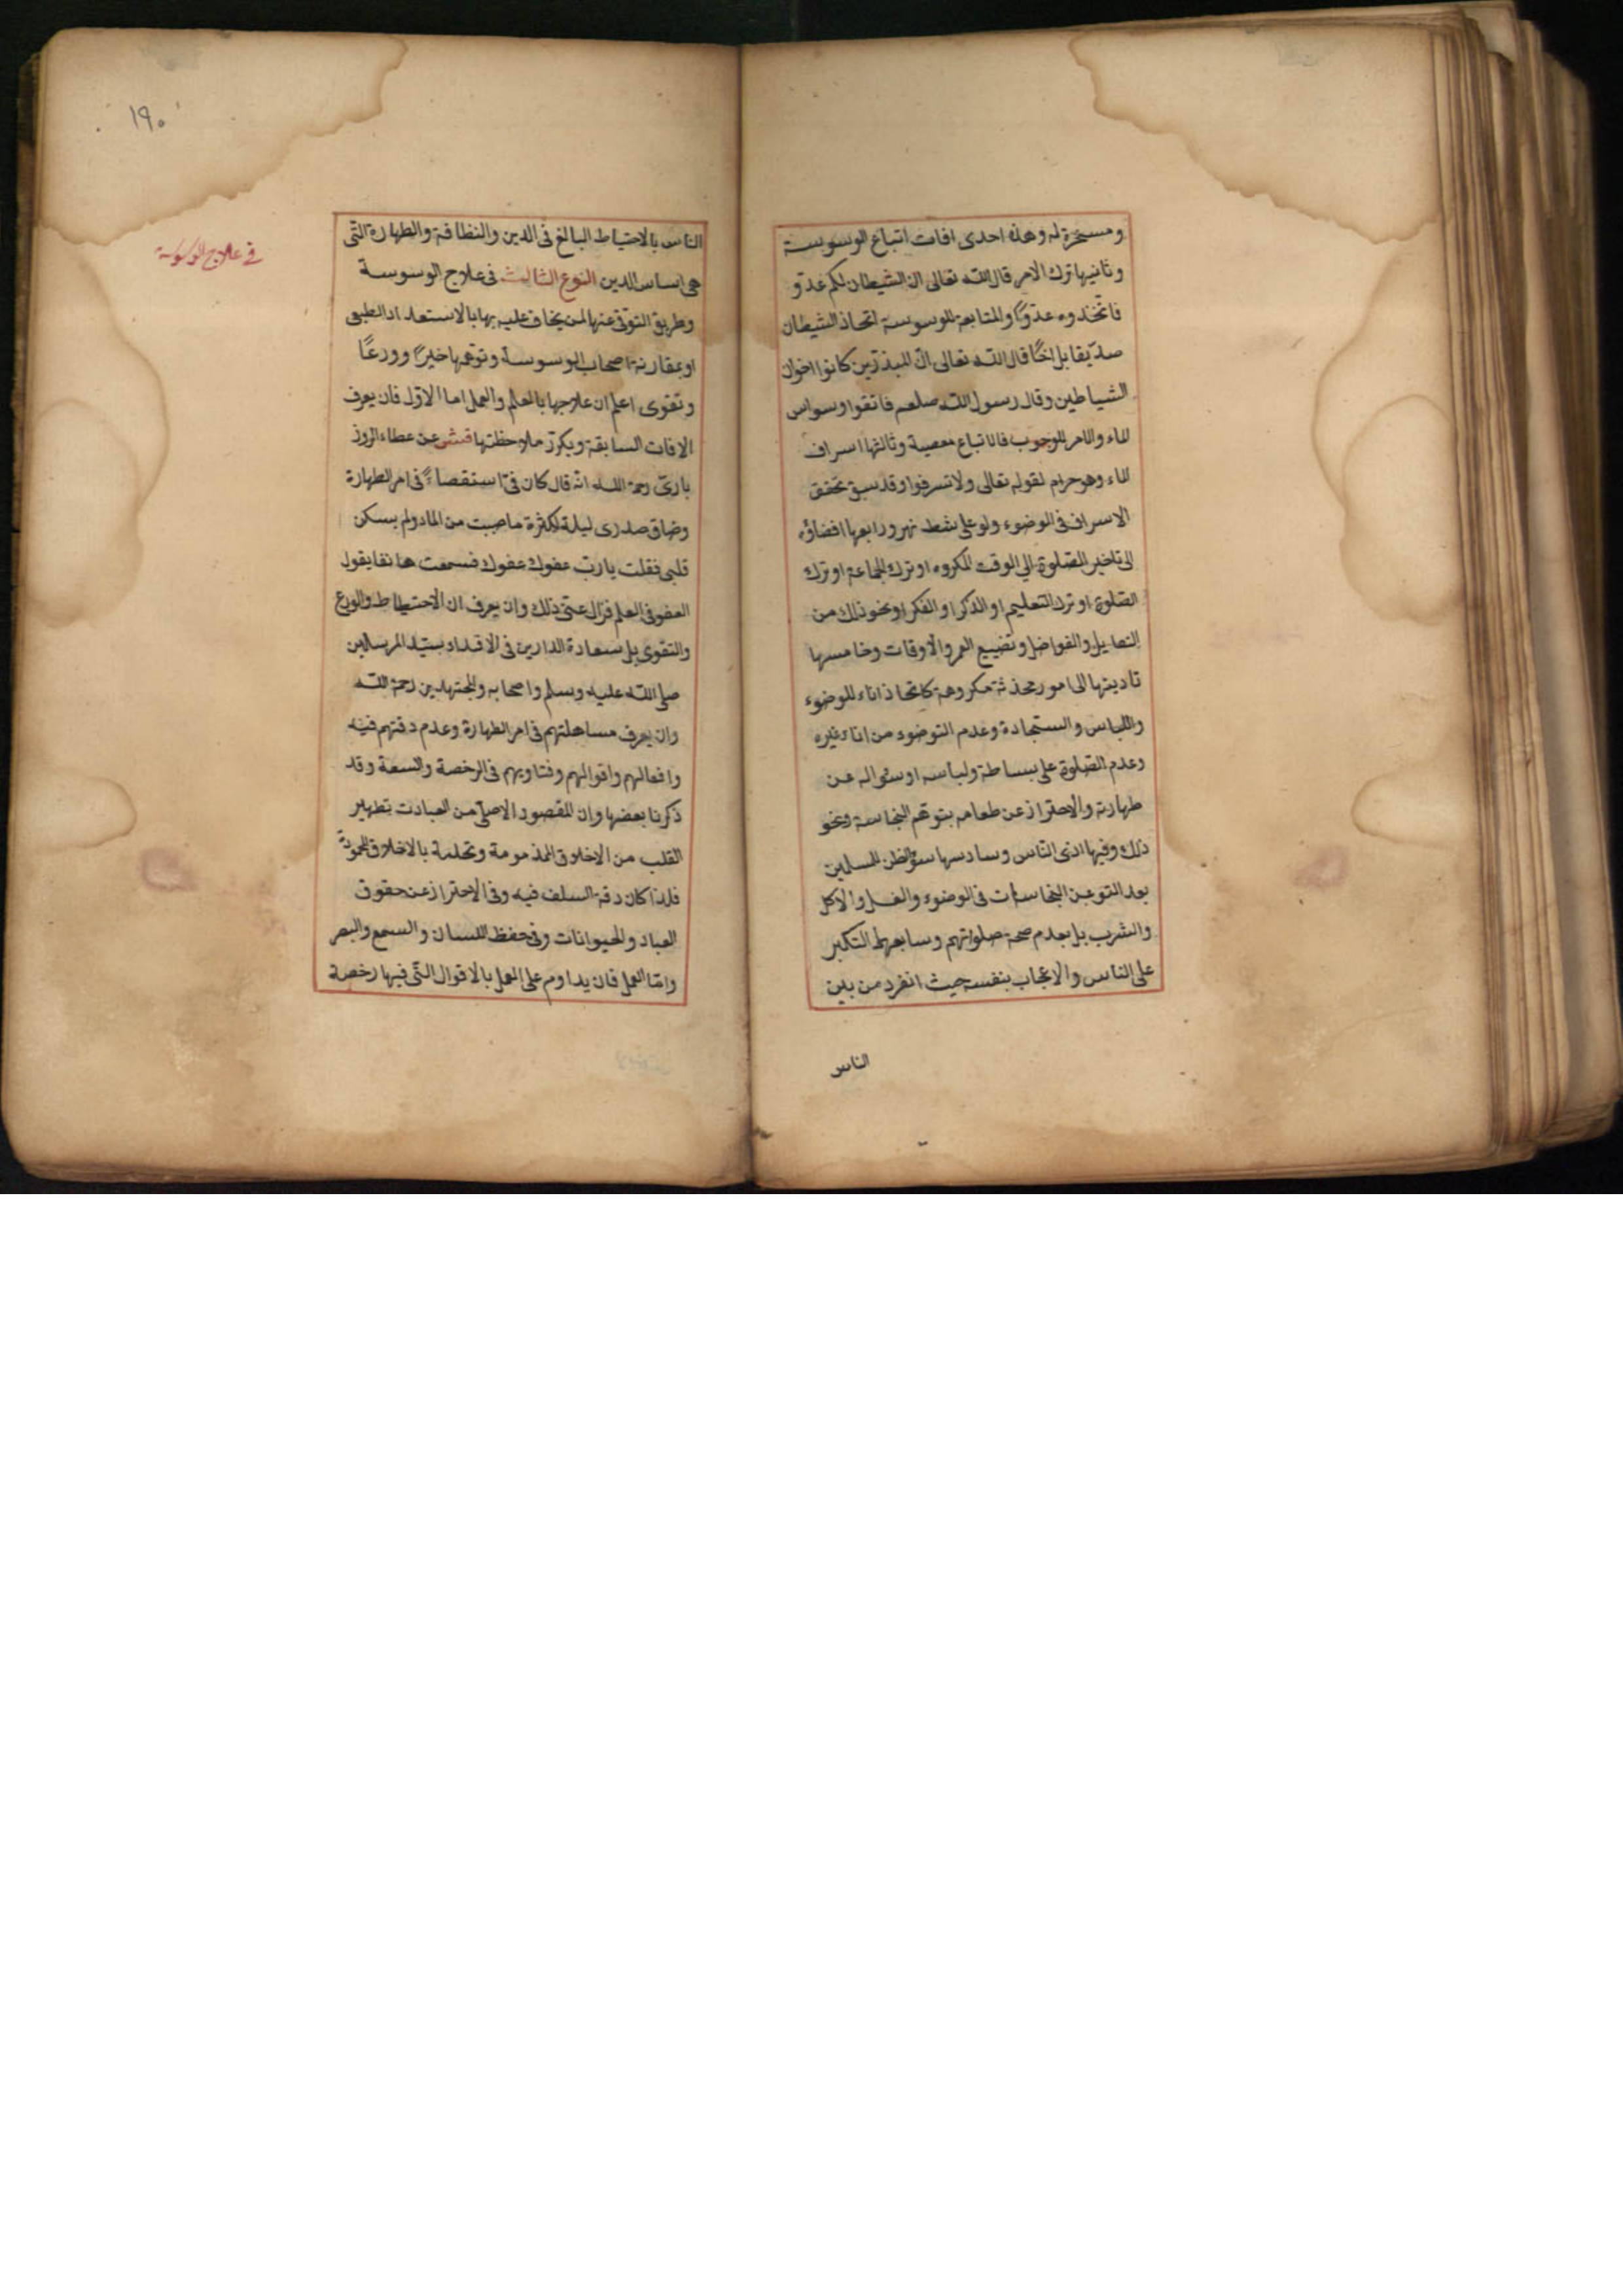 ومسخرة له وهذه احدى افات اتباع الوسوسة
وثانيها ترك الامر قال الله تعالى ان الشيطان لكم عدو
فاتخذوه عدوًّا والمتابعة للوسوسة اتخاذ الشيطان
صديقا بل اخًا قال الله تعالى انّ المبذرين كانوا اخوان
الشياطين وقال رسول الله صلعم فاتقوا وسواس
الماء والامر للوجوب فالاتباع معصية وثالثها اسراف
الماء وهو حرام لقوله تعالى ولا تسرفوا وقد سبق تحقق
الاسراف فى الوضوء ولو على شط نهر ورابعها افضاؤه
الى تاخير الصّلوة الى الوقت المكروه او ترك الجماعة او ترك
الصّلوة او ترك التعليم او الذكر او الفكر او نحو ذلك من
الفضايل والفواضل وتضييع العمر والاوقات وخامسها
تاديتها الى امور محدثة مكروهة كاتخاذ اناء للوضوء
واللباس والسجادة وعدم التوضوء من اناء غيره
وعدم الصّلوة على بساطه ولباسه او سؤاله عن
طهارته والاحتراز عن طعامه بتوهّم النجاسة ونحو
ذلك وفيها اذى النّاس وسادسها سؤ الظن للمسلمين
بعد التوعن النجاسات فى الوضوء والغسل والاكل
والشرب بل بعدم صحة صلواتهم وسابعها التكبر
على الناس والاعجاب بنفسه حيث انفرد من بين
الناس
١٩٠
فى علاج الوسوسة
الناس بالاحتياط البالغ فى الدين والنظافة والطهارة التّى
هى اساس الدين النوع الثالث فى علاج الوسوسة
وطريق التوقى عنها لمن يخاف عليه بها بالاستعداد الطبعى
او بمقارنة اصحاب الوسوسة وتوهمها خيرًا وورعًا
وتقوى اعلم ان علاجها بالعلم والعمل اما الاوّل فان يعرف
الافات السابقة ويكرّر ملاحظتها فتش عن عطاء الروذ
بارىّ رحمة اللّه انّه قال كان فىّ استقصاءً فى امر الطهارة
وضاق صدرى ليلة لكثرة ما صببت من الماء ولم يسكن
قلبى فقلت يا ربّ عفوك عفوك فسمعت هاتفا يقول
العفو فى العلم فزال عنّى ذلك وان يعرف ان الاحتياط والورع
والتقوى بل سعادة الدارين فى الاقتداء بسيّد المرسلين
صلى اللّه عليه وسلم واصحابه والمجتهدين رحمة اللّه
وان يعرف مساهلتهم فى امر الطهارة وعدم دقتهم فيه
وافعالهم واقوالهم وفتاويهم فى الرخصة والسعة وقد
ذكرنا بعضها وان المقصود الاصلّى من العبادت تطهير
القلب من الاخلاق المذمومة وتحلية بالاخلاق المحمودة
فلذا كان دقة السلف فيه وفى الاحتراز عن حقوق
العباد والحيوانات وفى حفظ اللسان والسمع والبصر
وامّا العمل فان يداوم على العمل بالاقوال التّى فيها رخصة